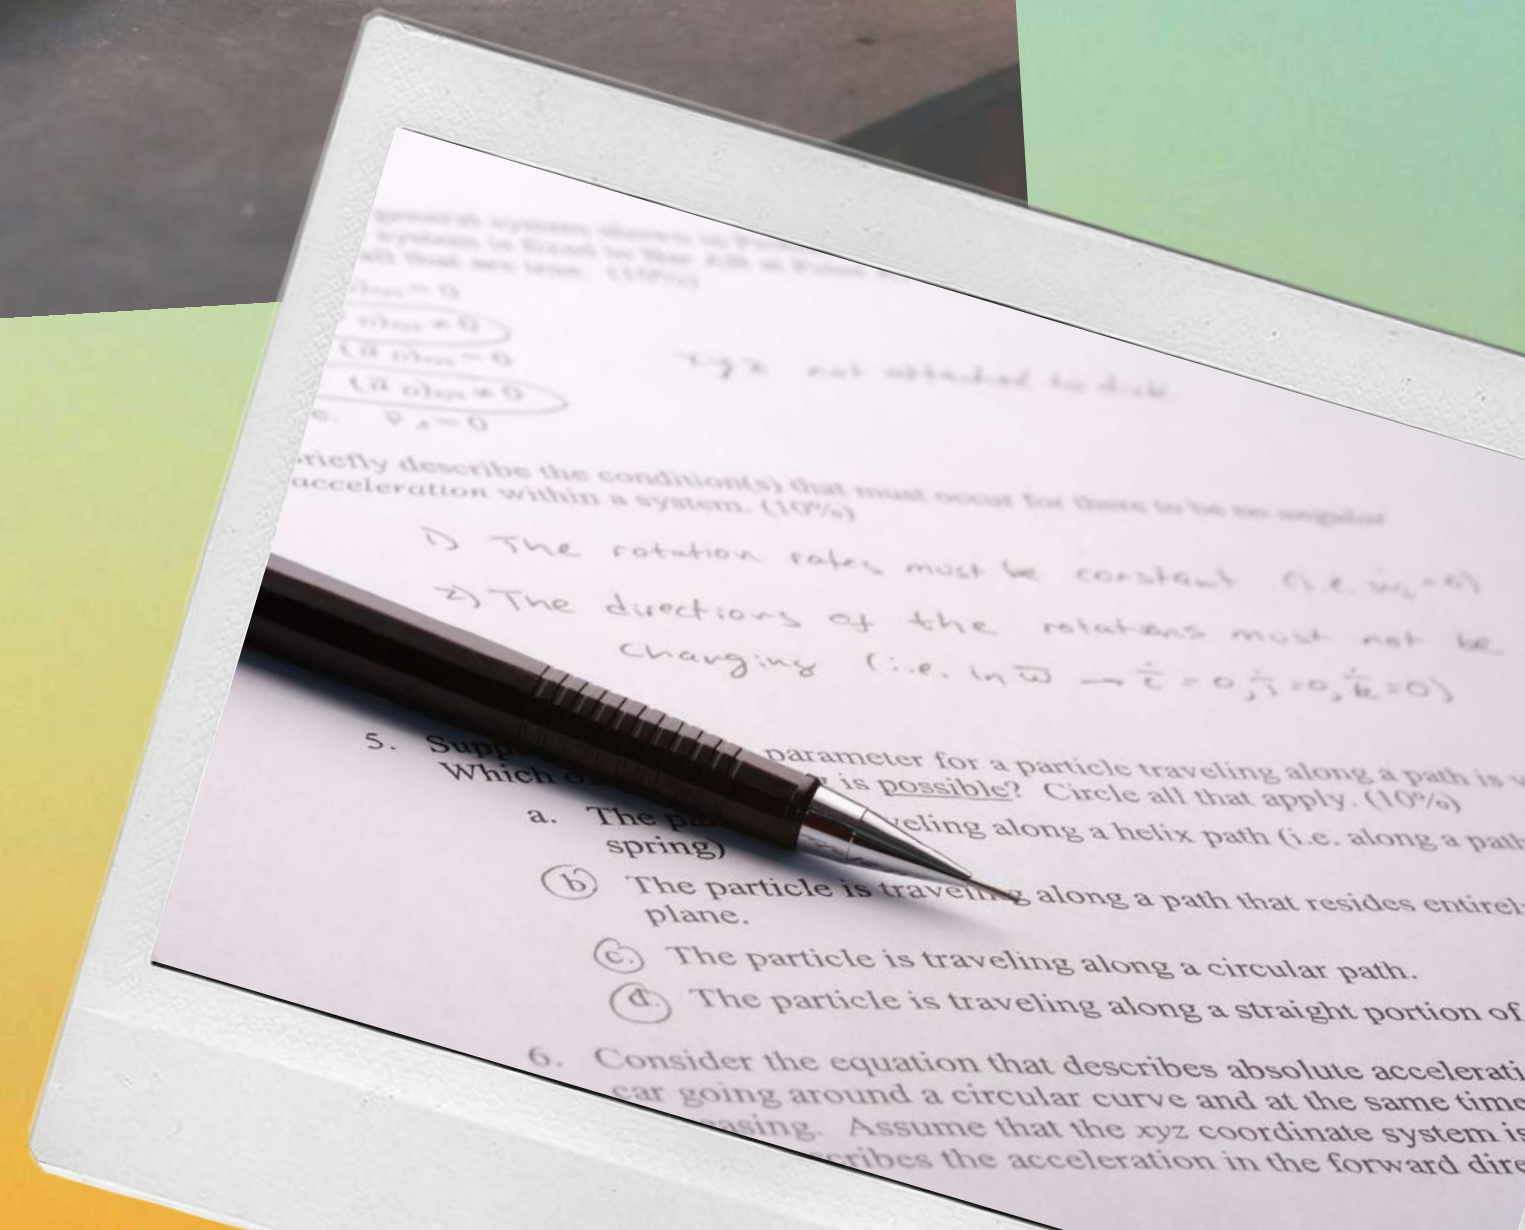 general system shown in
system is fixed to Bar AB at Point
all that are true. (10%)
= 0
≠ 0
= 0
≠ 0
e. = 0
riefly describe the condition(s) that must occur for there to be no angular
acceleration within a system. (10%)
xyz not attached to disk.
1) The rotation rates must be constant (i.e.
2) The directions of the rotations must not be
changing (i.e. in ω̅ → i̇ = 0, j̇ = 0, k̇ = 0)
5. Supp parameter for a particle traveling along a path is
Which o is possible? Circle all that apply. (10%)
a. The pa veling along a helix path (i.e. along a path
spring)
b The particle is traveling along a path that resides entirel
plane.
c. The particle is traveling along a circular path.
d. The particle is traveling along a straight portion of
6. Consider the equation that describes absolute accelerati
car going around a circular curve and at the same time
easing. Assume that the xyz coordinate system is
cribes the acceleration in the forward dire